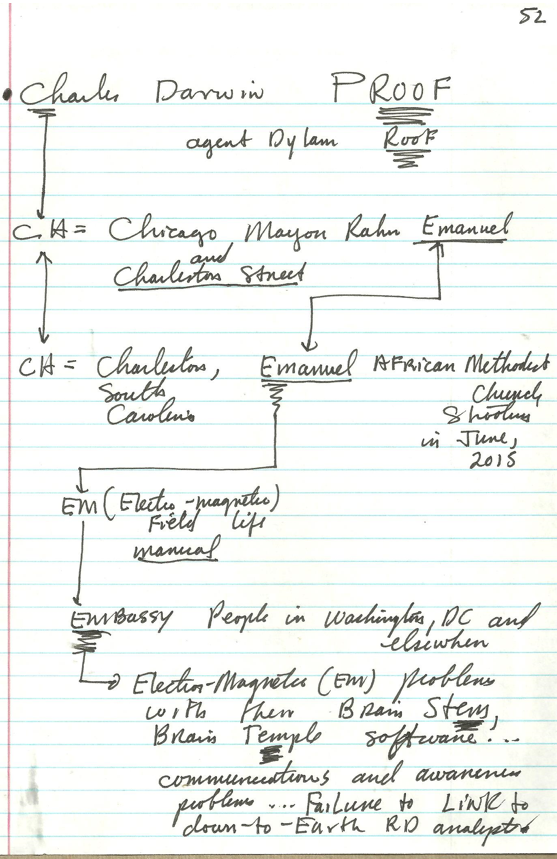 52
• Charles Darwin PROOF
agent Dylan Roof
CH = Chicago Mayor Rahm Emanuel
and
Charleston Street
CH = Charleston, Emanuel AFrican Methodist
South Church
Carolina Shooting
in June,
2015
EM (Electro-magnetic)
Field life
manual
EMBassy People in Washington, DC and
elsewhere
Electro-Magnetic (EM) problems
with their Brain Stem,
Brain Temple software...
communications and awareness
problems ... Failure to LINK to
down-to-Earth RD analysts